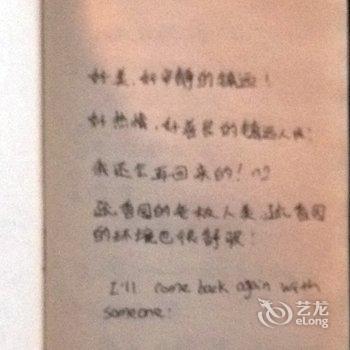 好美、好宁静的镇远!
好热情、好善良的镇远人民!
我还会再回来的! ^^
香园的老板人美、香园
的环境也很舒服!
I'll come back again with
someone!
艺龙
eLong